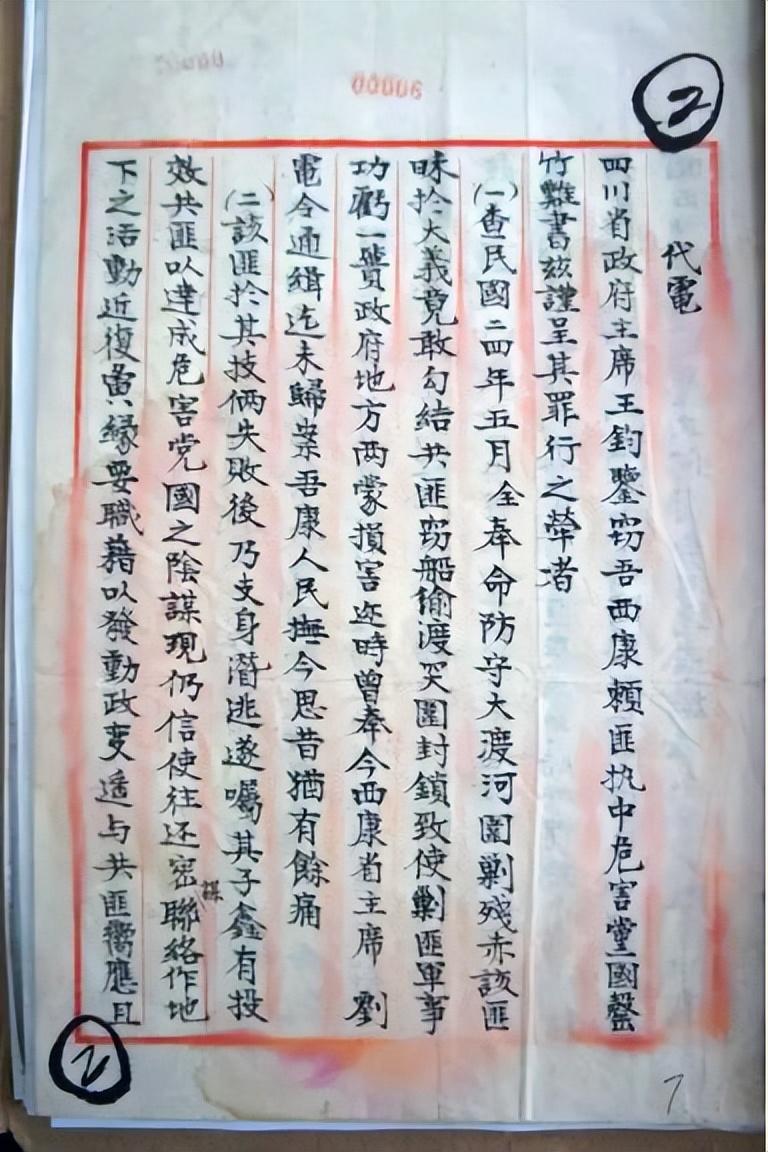 00006
2
代電
四川省政府主席王鈞鑒窃吾西康賴匪执中危害黨國罄
竹難書兹謹呈其罪行之犖者
(一)查民國二四年五月全奉命防守大渡河圍剿殘赤該匪
昧扵大義竟敢勾结共匪窃船偷渡突圍封鎖致使剿匪軍事
功虧一簣政府地方两蒙損害迩時曾奉今西康省主席 劉
電令通緝迄未歸案吾康人民撫今思昔猶有餘痛
(二)該匪扵其技俩失敗後乃支身潛逃遂囑其子鑫有投
效共匪以達成危害党國之陰謀現仍信使往还密謀聯絡作地
下之活動近復夤緣要職藉以發動政变遥与共匪嚮應且
2
7